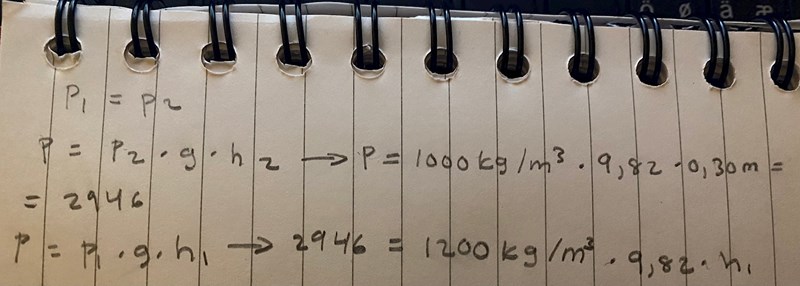 P₁ = P₂
P = P₂ · g · h₂ → P = 1000 kg/m³ · 9,82 · 0,30 m =
= 2946
P = P₁ · g · h₁ → 2946 = 1200 kg/m³ · 9,82 · h₁